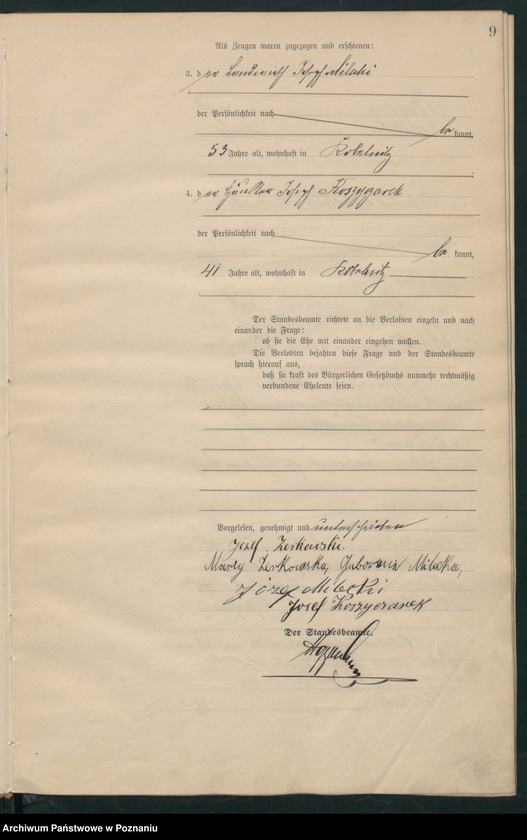 9
Als Zeugen waren zugezogen und erschienen:
3. der Landwirth Joseph Milski
der Persönlichkeit nach
be kannt,
53 Jahre alt, wohnhaft in Kobelnitz
4. der Häusler Joseph Koszyczarek
der Persönlichkeit nach
be kannt,
41 Jahre alt, wohnhaft in Kobelnitz
Der Standesbeamte richtete an die Verlobten einzeln und nach
einander die Frage:
ob sie die Ehe mit einander eingehen wollen.
Die Verlobten bejahten diese Frage und der Standesbeamte
sprach hierauf aus,
daß sie kraft des Bürgerlichen Gesetzbuchs nunmehr rechtmäßig
verbundene Eheleute seien.
Vorgelesen, genehmigt und unterschrieben
Józef Zerkowski.
Zerkowska,
Józef
Josef Koszyczarek
Der Standesbeamte.
Archiwum Państwowe w Poznaniu